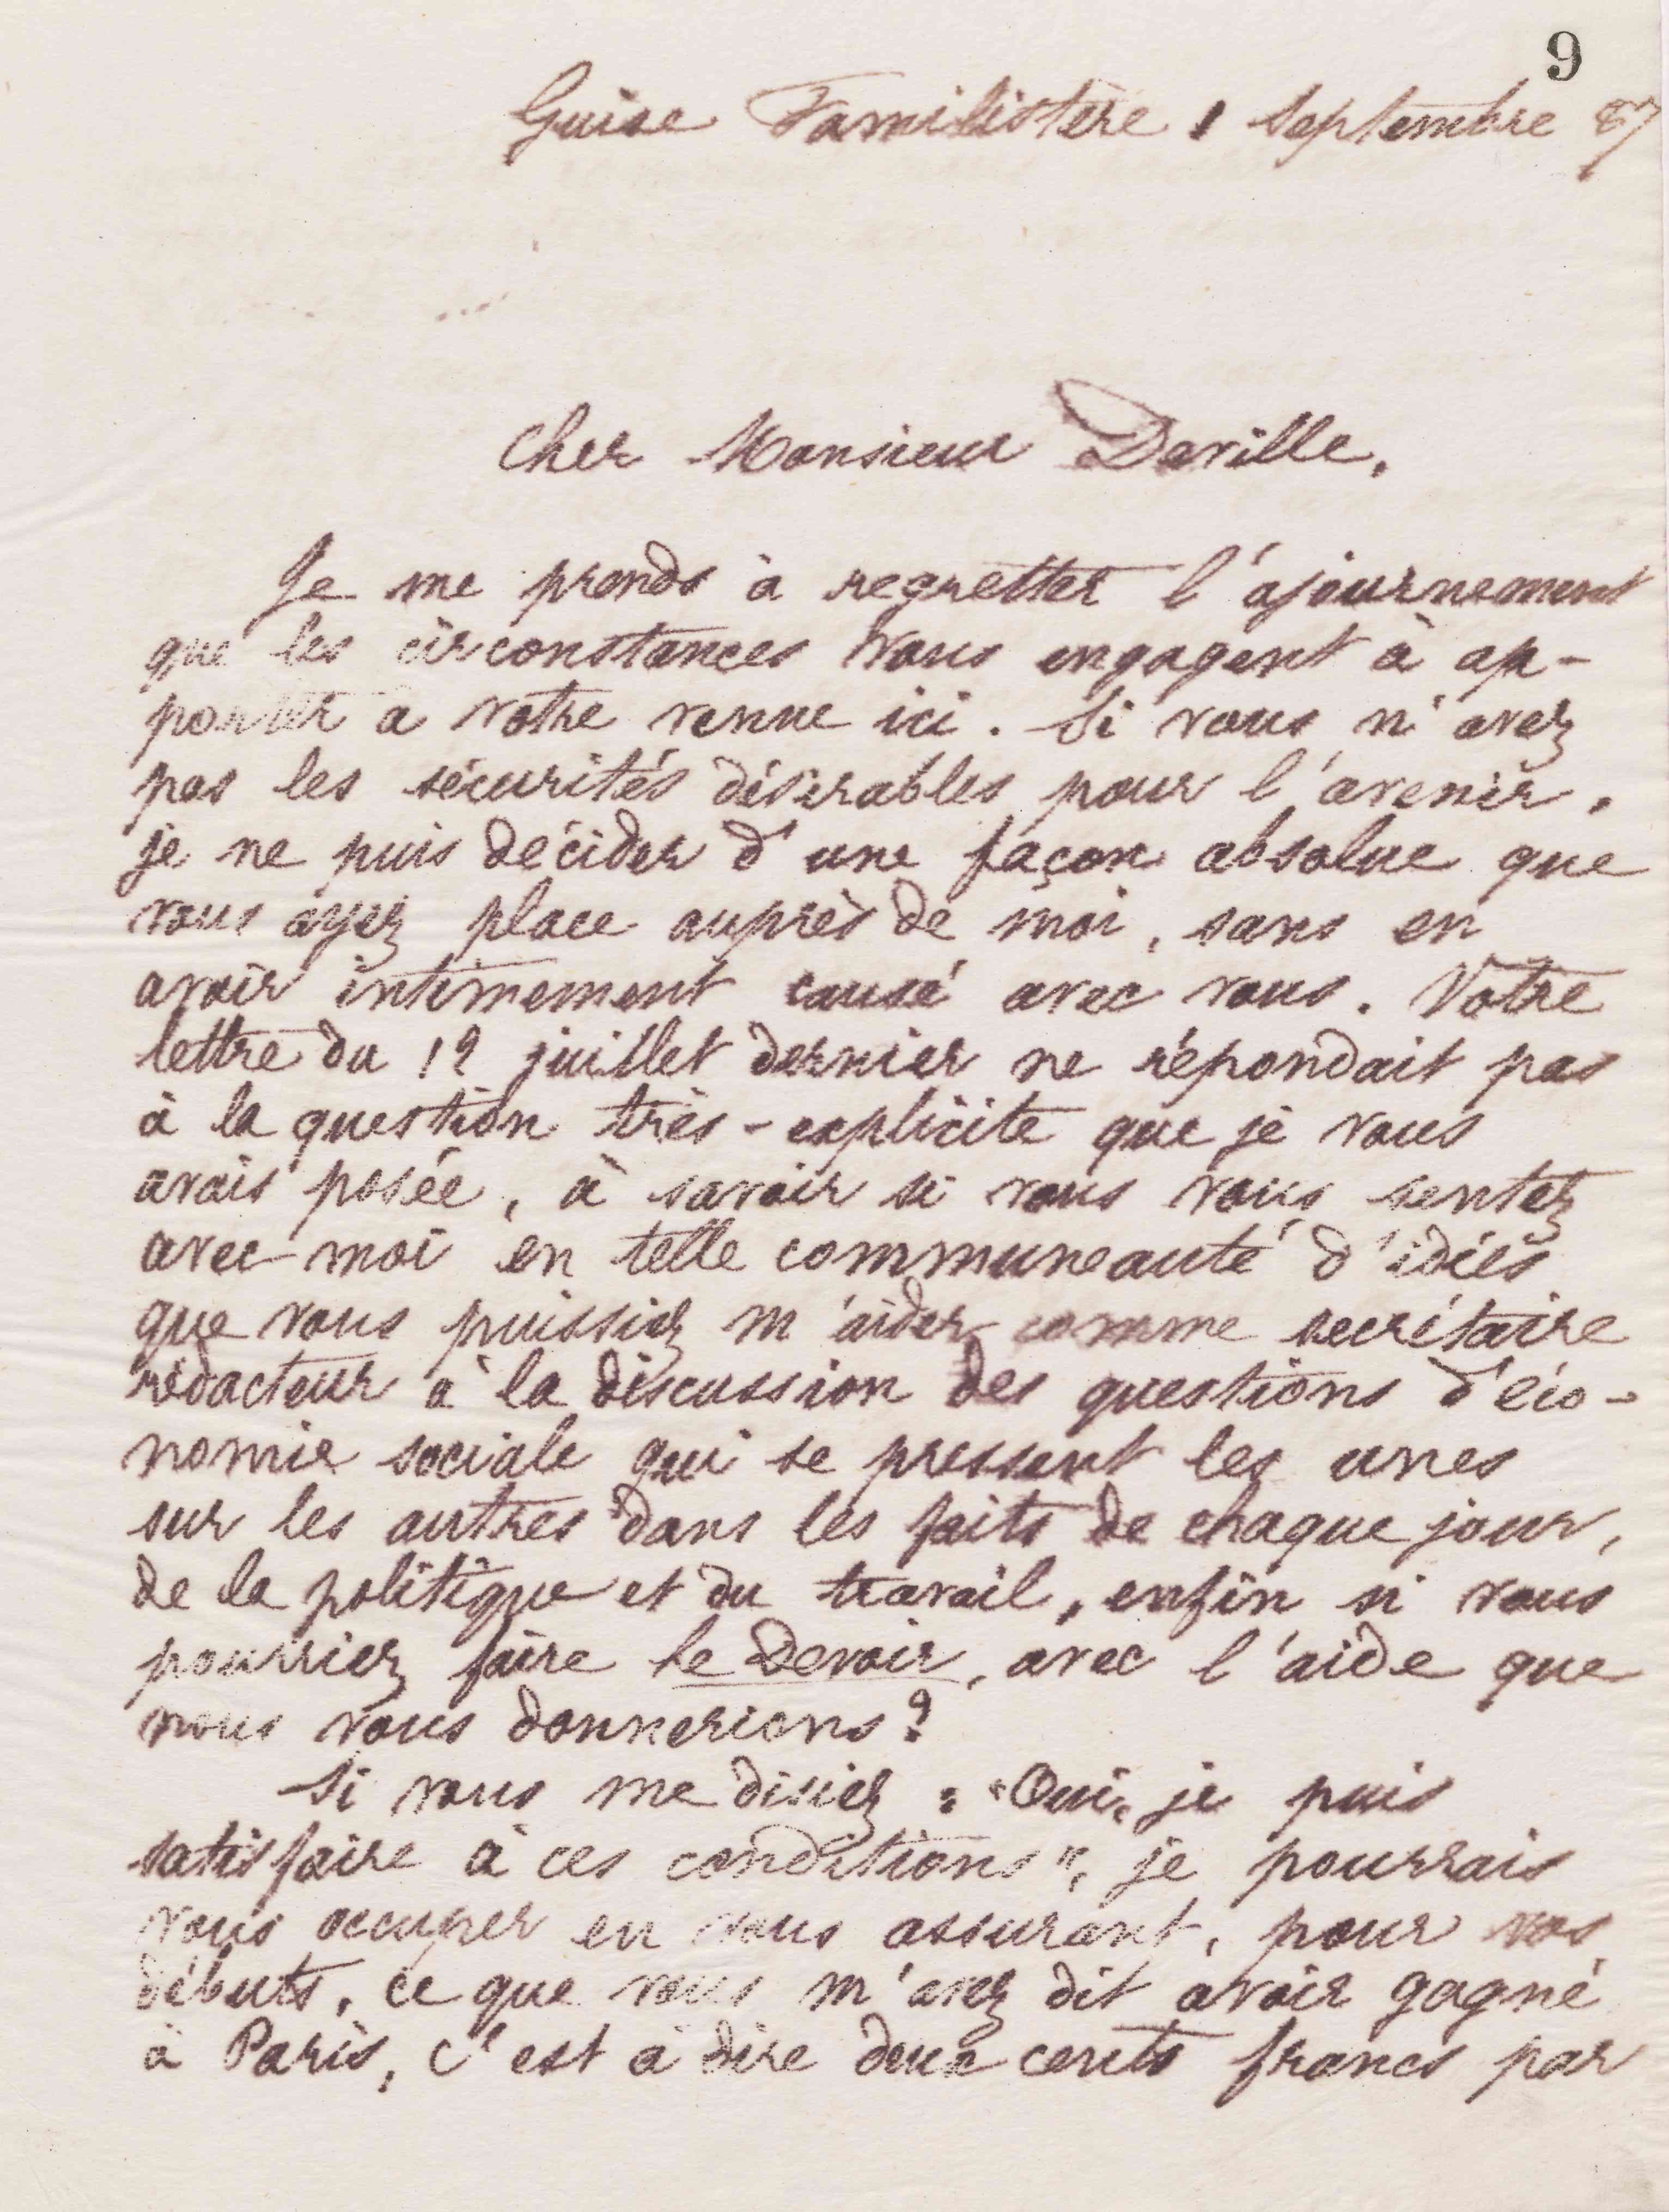 9
Guise Familistère 1 Septembre 87
Cher Monsieur Deville,
Je me prends à regretter l'ajournement
que les circonstances vous engagent à ap-
porter à votre venue ici. Si vous n'avez
pas les sécurités désirables pour l'avenir,
je ne puis décider d'une façon absolue que
vous ayez place auprès de moi, sans en
avoir intimement causé avec vous. Votre
lettre du 12 juillet dernier ne répondait pas
à la question très-explicite que je vous
avais posée, à savoir si vous vous sentez
avec moi en telle communeauté d'idées
que vous puissiez m'aider comme secrétaire
rédacteur à la discussion des questions d'éco-
nomie sociale qui se pressent les unes
sur les autres dans les faits de chaque jour,
de la politique et du travail, enfin si vous
pourriez faire le Devoir, avec l'aide que
nous vous donnerions?
Si vous me disiez : "Oui, je puis
satisfaire à ces conditions", je pourrais
vous occuper en vous assurant, pour vos
débuts, ce que vous m'avez dit avoir gagné
à Paris, c'est à dire deux cents francs par